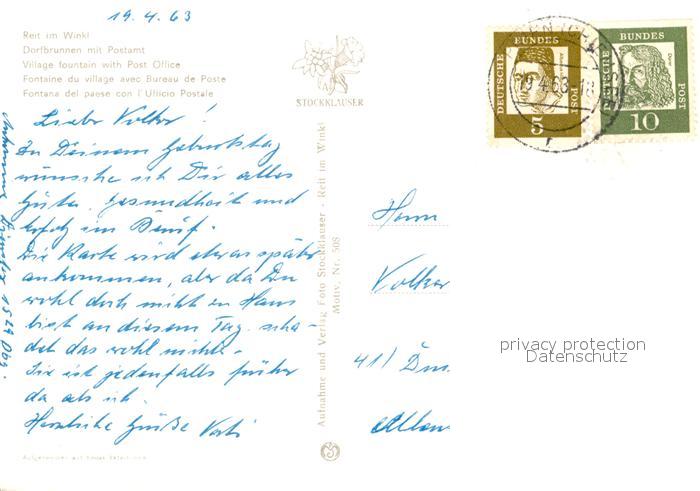 19.4.63
Reit im Winkl
Dorfbrunnen mit Postamt
Village fountain with Post Office
Fontaine du village avec Bureau de Poste
Fontana del paese con l'Ufficio Postale
STOCKKLAUSER
Lieber Volker!
Zu Deinem Geburtstag
wünsche ich Dir alles
Gute, Gesundheit und
Erfolg im Beruf.
Die Karte wird etwas später
ankommen, aber da Du
wohl doch nicht zu Haus
bist an diesem Tag, scha-
det das wohl nichts.
Sie ist jedenfalls früher
da als ich.
Herzliche Grüße
Aufnahme und Verlag Foto Stockklauser - Reit im Winkl
Motiv. Nr. 508
DEUTSCHE BUNDESPOST
5
DEUTSCHE BUNDESPOST
10
19.4.63
Herrn
Volker
41)
privacy protection
Datenschutz